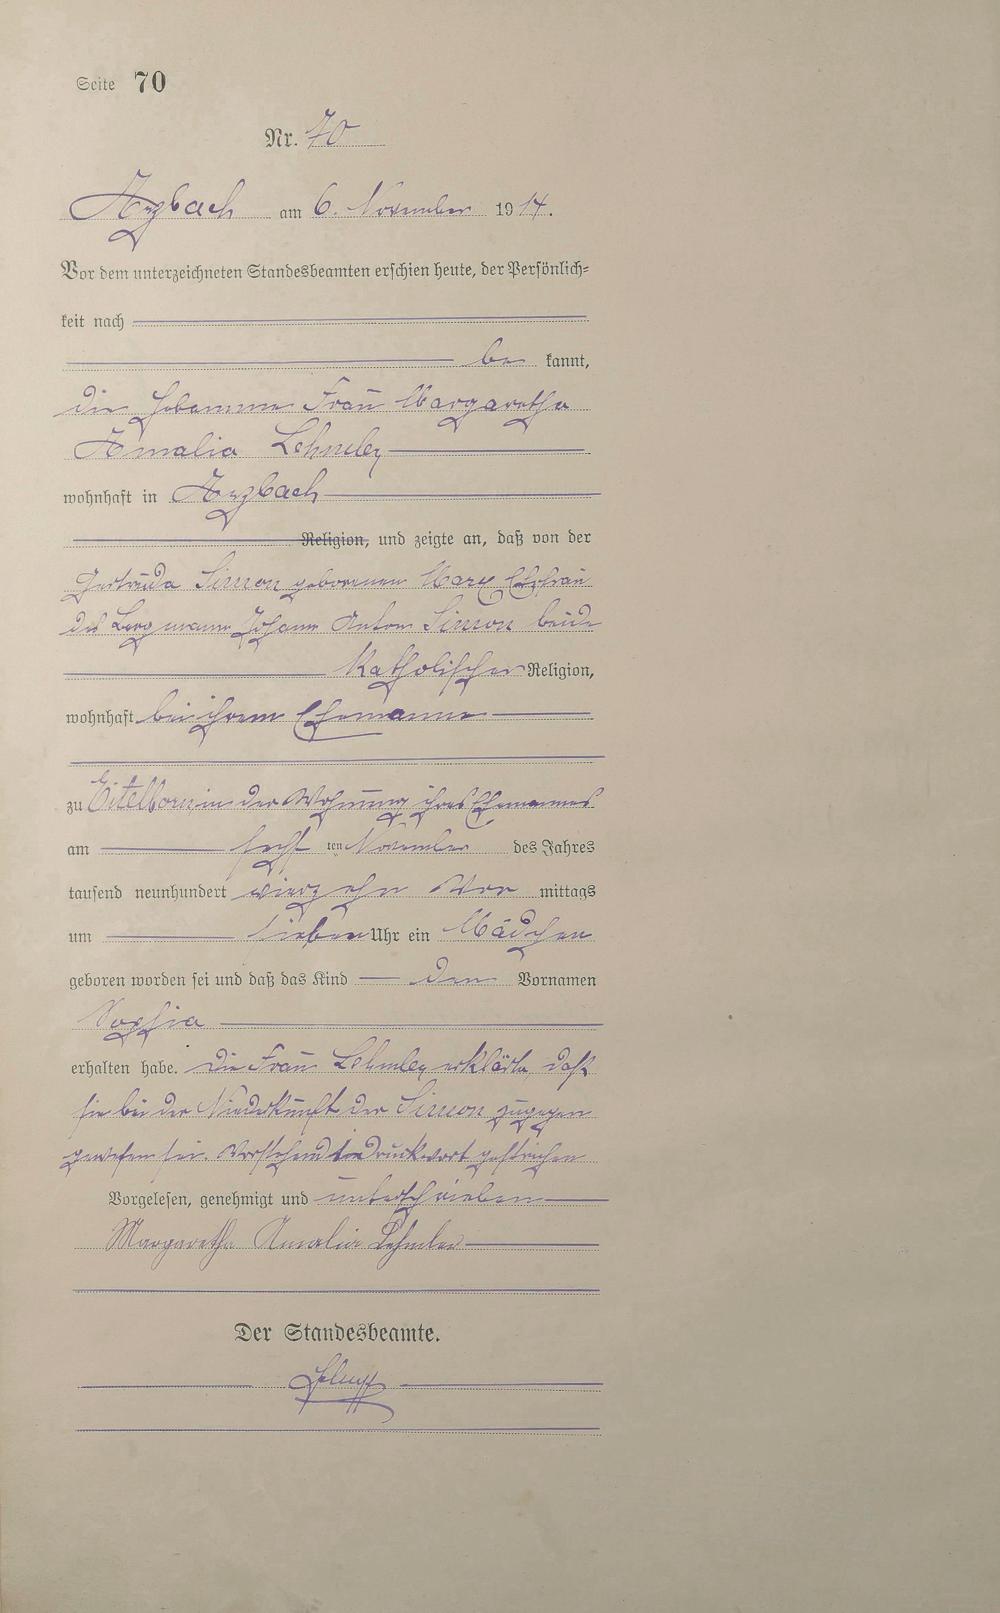 Seite 70
Nr. 70
Arzbach am 6. November 1914.
Vor dem unterzeichneten Standesbeamten erschien heute, der Persönlich=
keit nach
be kannt,
die Hebamme Frau Margaretha
Amalia Lehmler
wohnhaft in Arzbach
Religion, und zeigte an, daß von der
Gertruda Simon geborenen Marx Ehefrau
des Bergmann Johann Anton Simon beide
Katholischer Religion,
wohnhaft bei ihrem Ehemanne
zu Eitelborn in der Wohnung ihres Ehemannes
am sechs ten November des Jahres
tausend neunhundert vierzehn Vor mittags
um sieben Uhr ein Mädchen
geboren worden sei und daß das Kind den Vornamen
Sophia
erhalten habe. Die Frau Lehmler erklärte, daß
sie bei der Niederkunft der Simon zugegen
gewesen sei. Vorstehend ein Druckwort gestrichen
Vorgelesen, genehmigt und unterschrieben
Margaretha Amalia Lehmler
Der Standesbeamte.